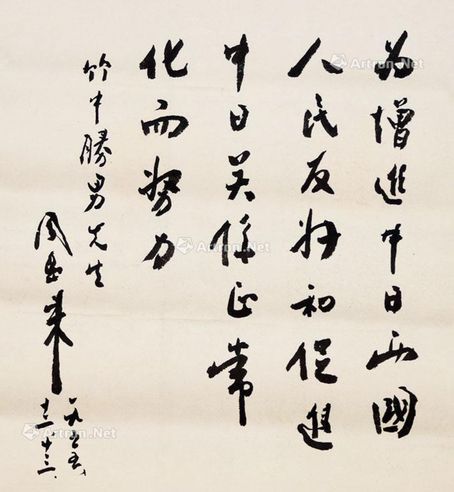 为增進中日两國
人民友好和促進
中日关係正常
化而努力
竹中勝男先生
周恩来
一九五五
Artron.Net
Artron.Net
Artron.Net
Artron.Net